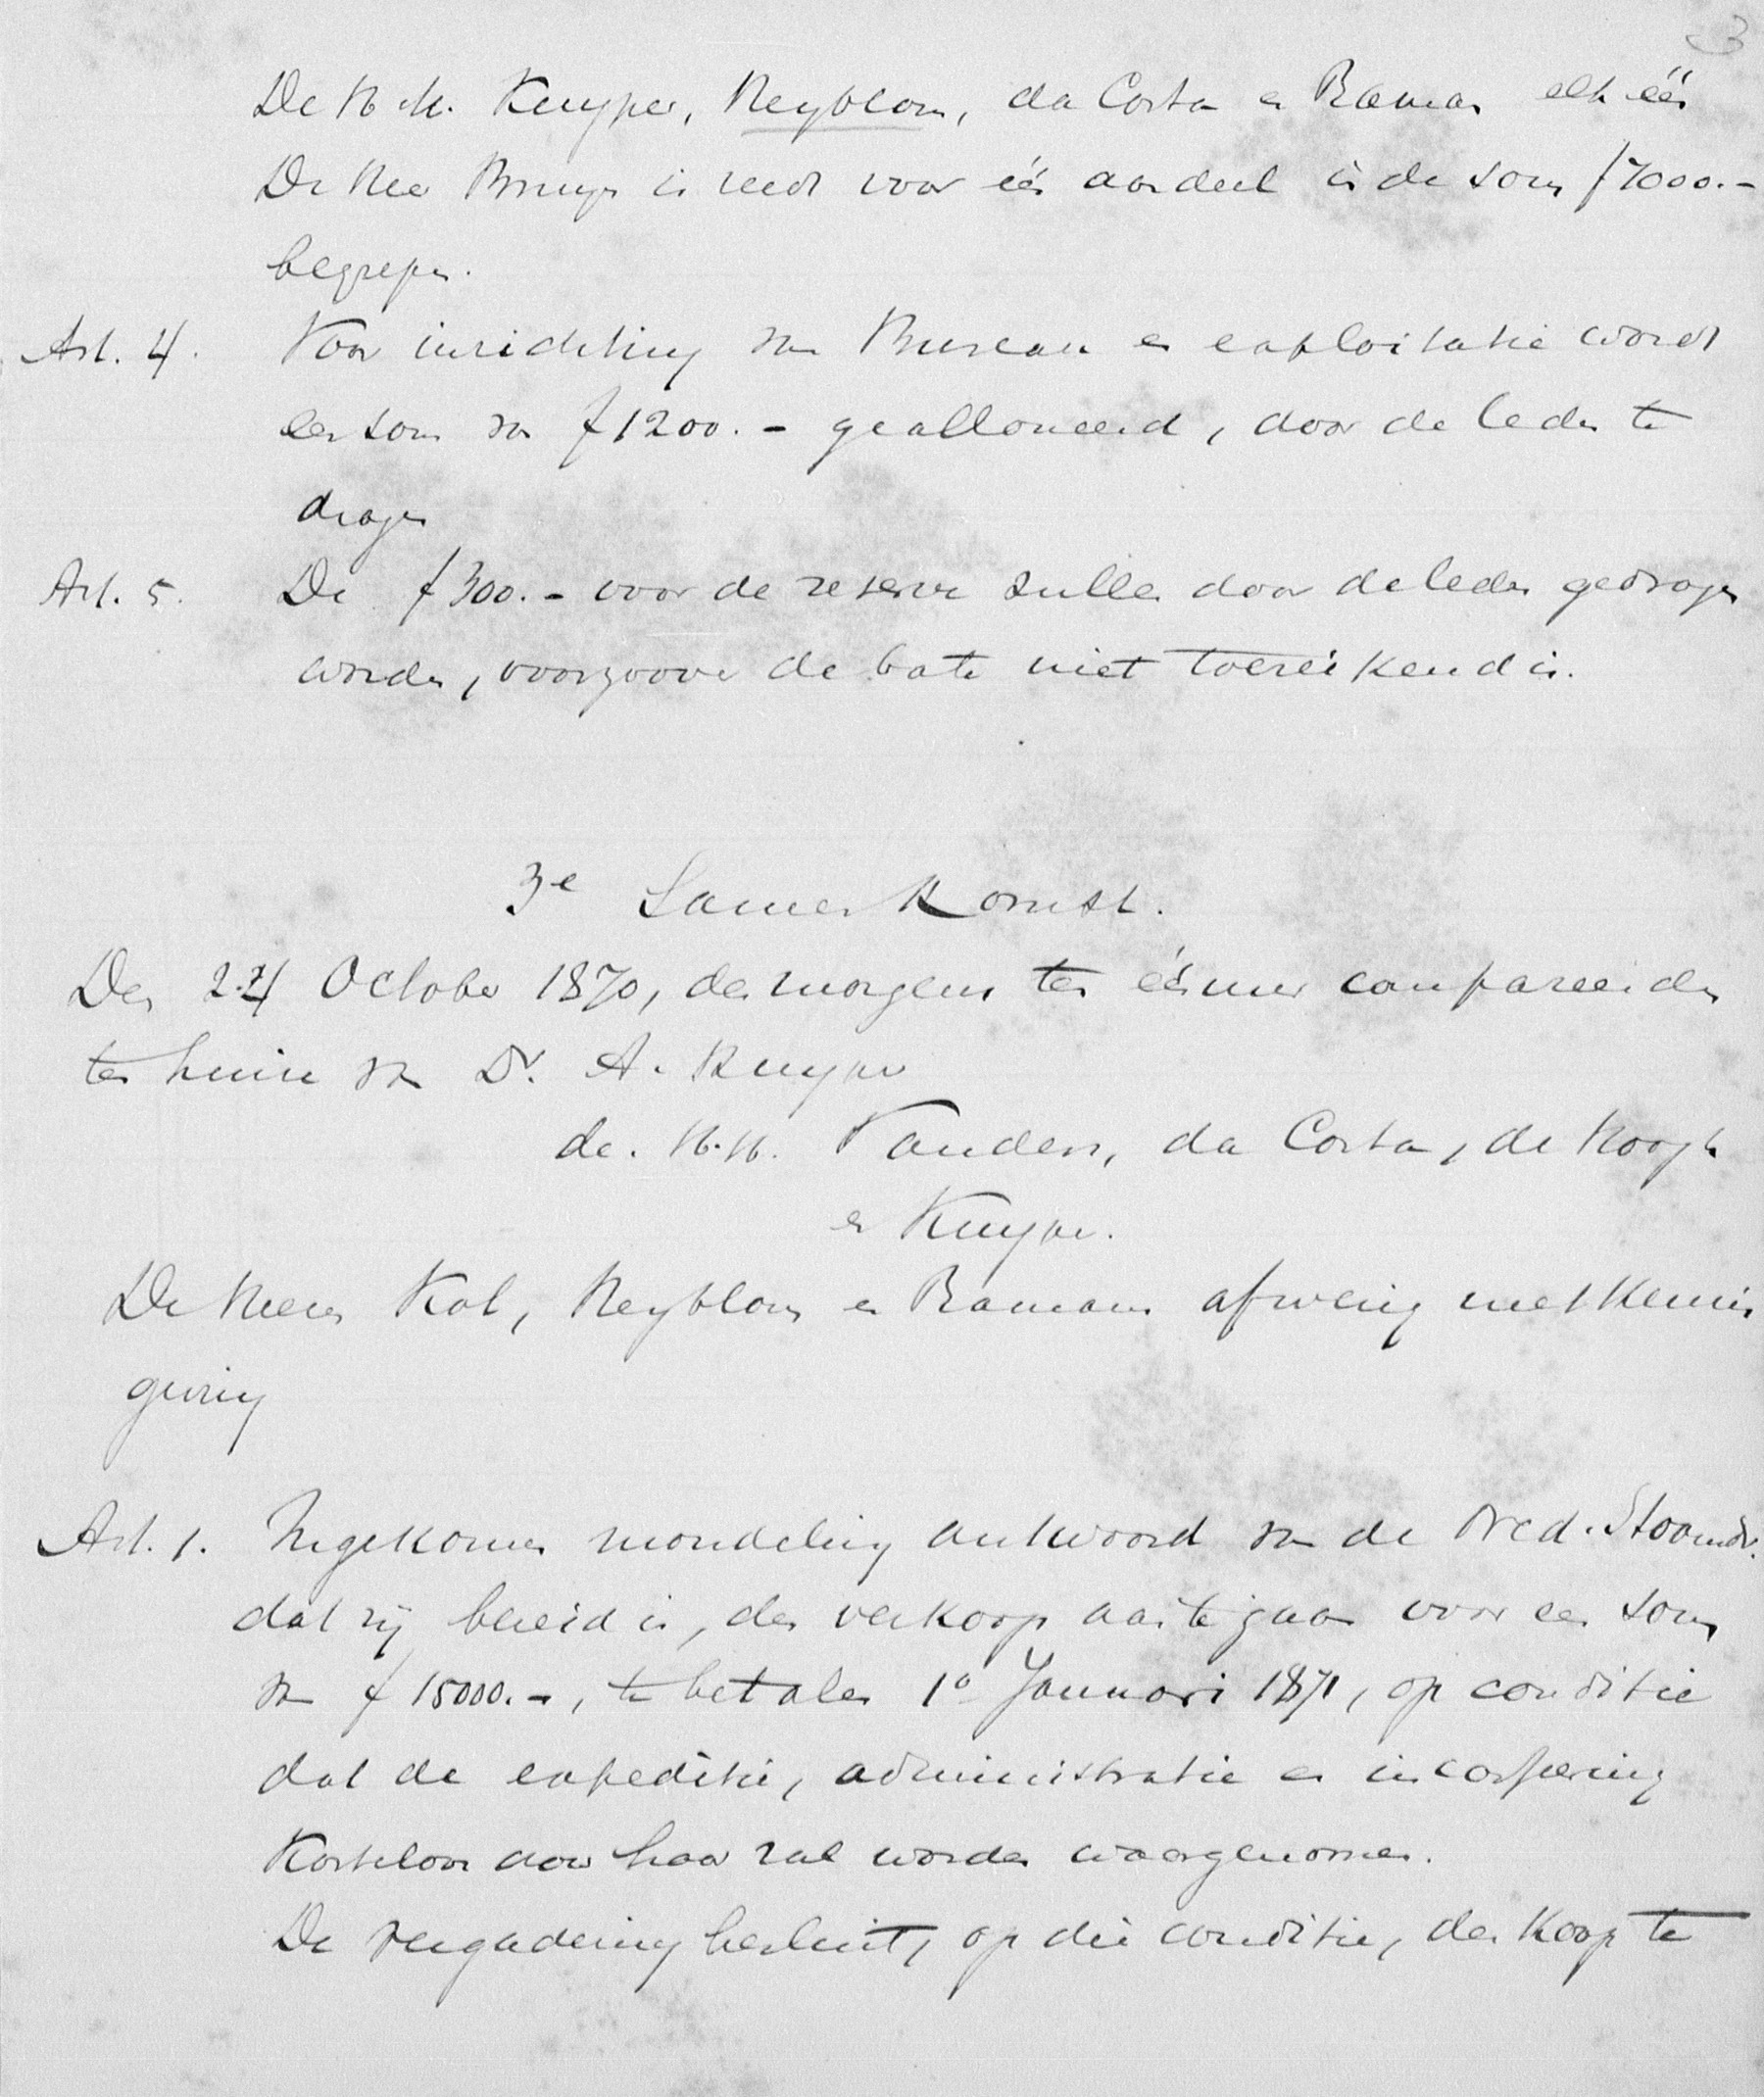 3
De H.H. Kuyper, Heyblom, da Costa en Ramaer elk één
De Heer Bruyn is reeds voor één aandeel in de som f 7000.-
begrepen.
Art. 4. Voor inrichting van Bureau en exploitatie wordt
een som van f 1200.- gealloueerd, door de leden te
dragen
Art. 5. De f 300.- voor de reserve zullen door de leden gedragen
worden, voorzoover de bate niet toereikend is.
3e Samenkomst.
Den 24 October 1870, des morgens ten één uur compareerden
ten huize van Dr. A. Kuyper
de H.H. Vanden, da Costa, de Hoogh
en Kuyper.
De Heeren Kol, Heyblom en Ramaer afwezig met kennis
geving
Art. 1. Ingekomen mondeling antwoord van de Ned. Stoomdr.
dat zij bereid is, den verkoop aan te gaan voor een som
van f 15000.-, te betalen 1o Januari 1871, op conditie
dat de expeditie, administratie en incasseering
kosteloos door haar zal worden waargenomen.
De vergadering besluit, op die conditie, den koop te